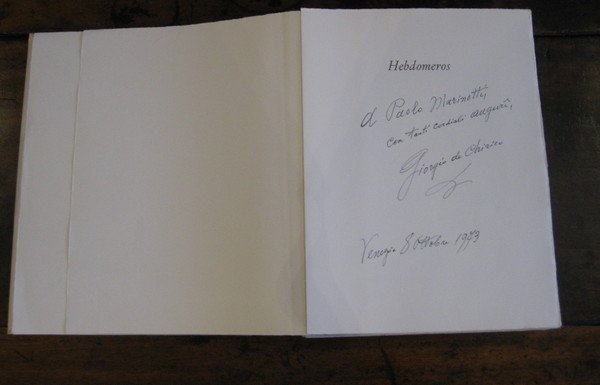 Hebdomeros
A Paolo Marinotti,
con tanti cordiali auguri,
Giorgio de Chirico
Venezia 8 Ottobre 1973